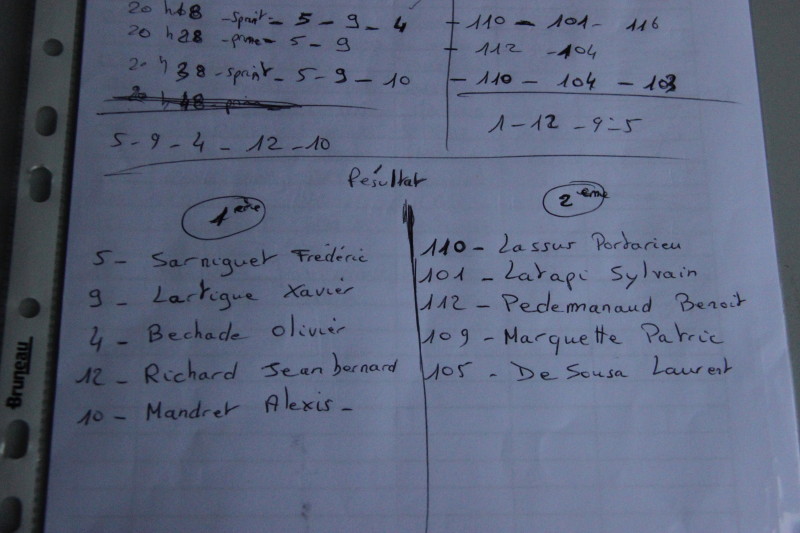 20 h 18 - sprint - 5 - 9 - 4 - 110 - 101 - 116
20 h 28 - prime - 5 - 9 - 112 - 104
20 h 38 - sprint - 5 - 9 - 10 - 110 - 104 - 103
5 - 9 - 4 - 12 - 10
1 - 12 - 9 - 5
Résultat
1ère
5 - Sarniguet Frédéric
9 - Lartigue Xavier
4 - Bechade Olivier
12 - Richard Jean bernard
10 - Mandret Alexis -
2ème
110 - Lassus Portarieu
101 - Latapi Sylvain
112 - Pedermanaud Benoit
109 - Marquette Patric
105 - De Sousa Laurent
Bruneau